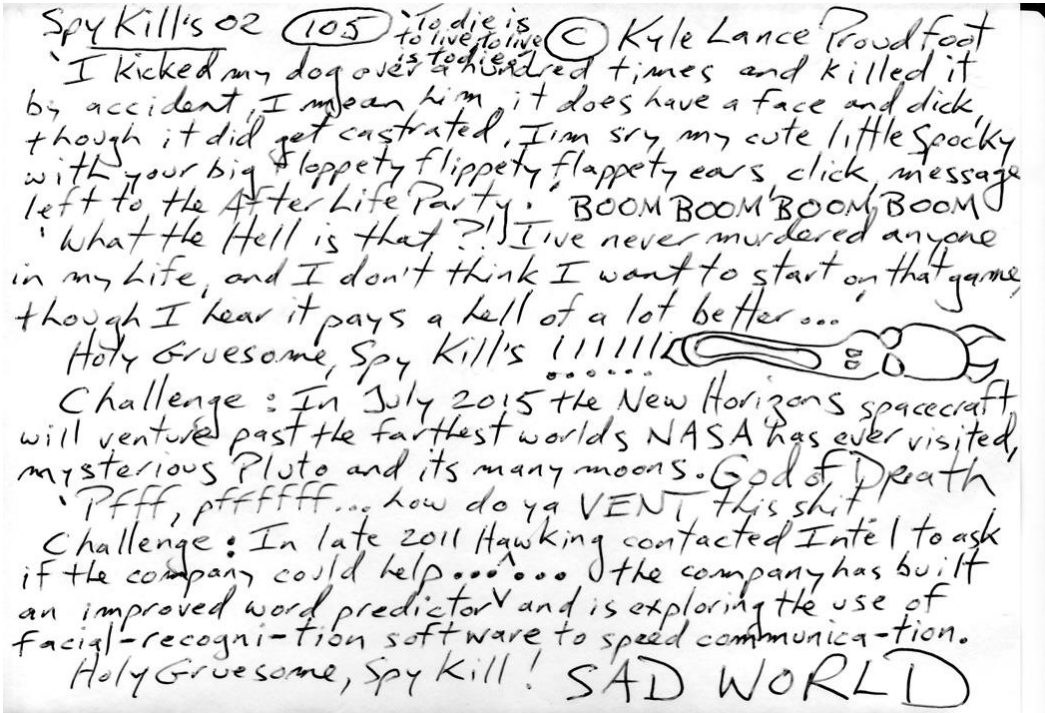 Spy Kill's 02 105 'To die is to live, to live is to die.' © Kyle Lance Proudfoot
'I kicked my dog over a hundred times and killed it
by accident, I mean him, it does have a face and dick,
though it did get castrated, I'm sry my cute little Spocky
with your big floppety flippety flappety ears, click, message
left to the After Life Party.' BOOM BOOM BOOM BOOM
'What the Hell is that?!' I've never murdered anyone
in my Life, and I don't think I want to start on that game,
though I hear it pays a hell of a lot better...'
Holy Gruesome, Spy Kill's !!!!!!!
Challenge: In July 2015 the New Horizons spacecraft
will venture past the farthest worlds NASA has ever visited,
mysterious Pluto and its many moons. God of Death
'Pfff, pffffff... how do ya VENT this shit.'
Challenge: In late 2011 Hawking contacted Intel to ask
if the company could help...^... the company has built
an improved word predictor and is exploring the use of
facial-recogni-tion software to speed communica-tion.
Holy Gruesome, Spy Kill! SAD WORLD